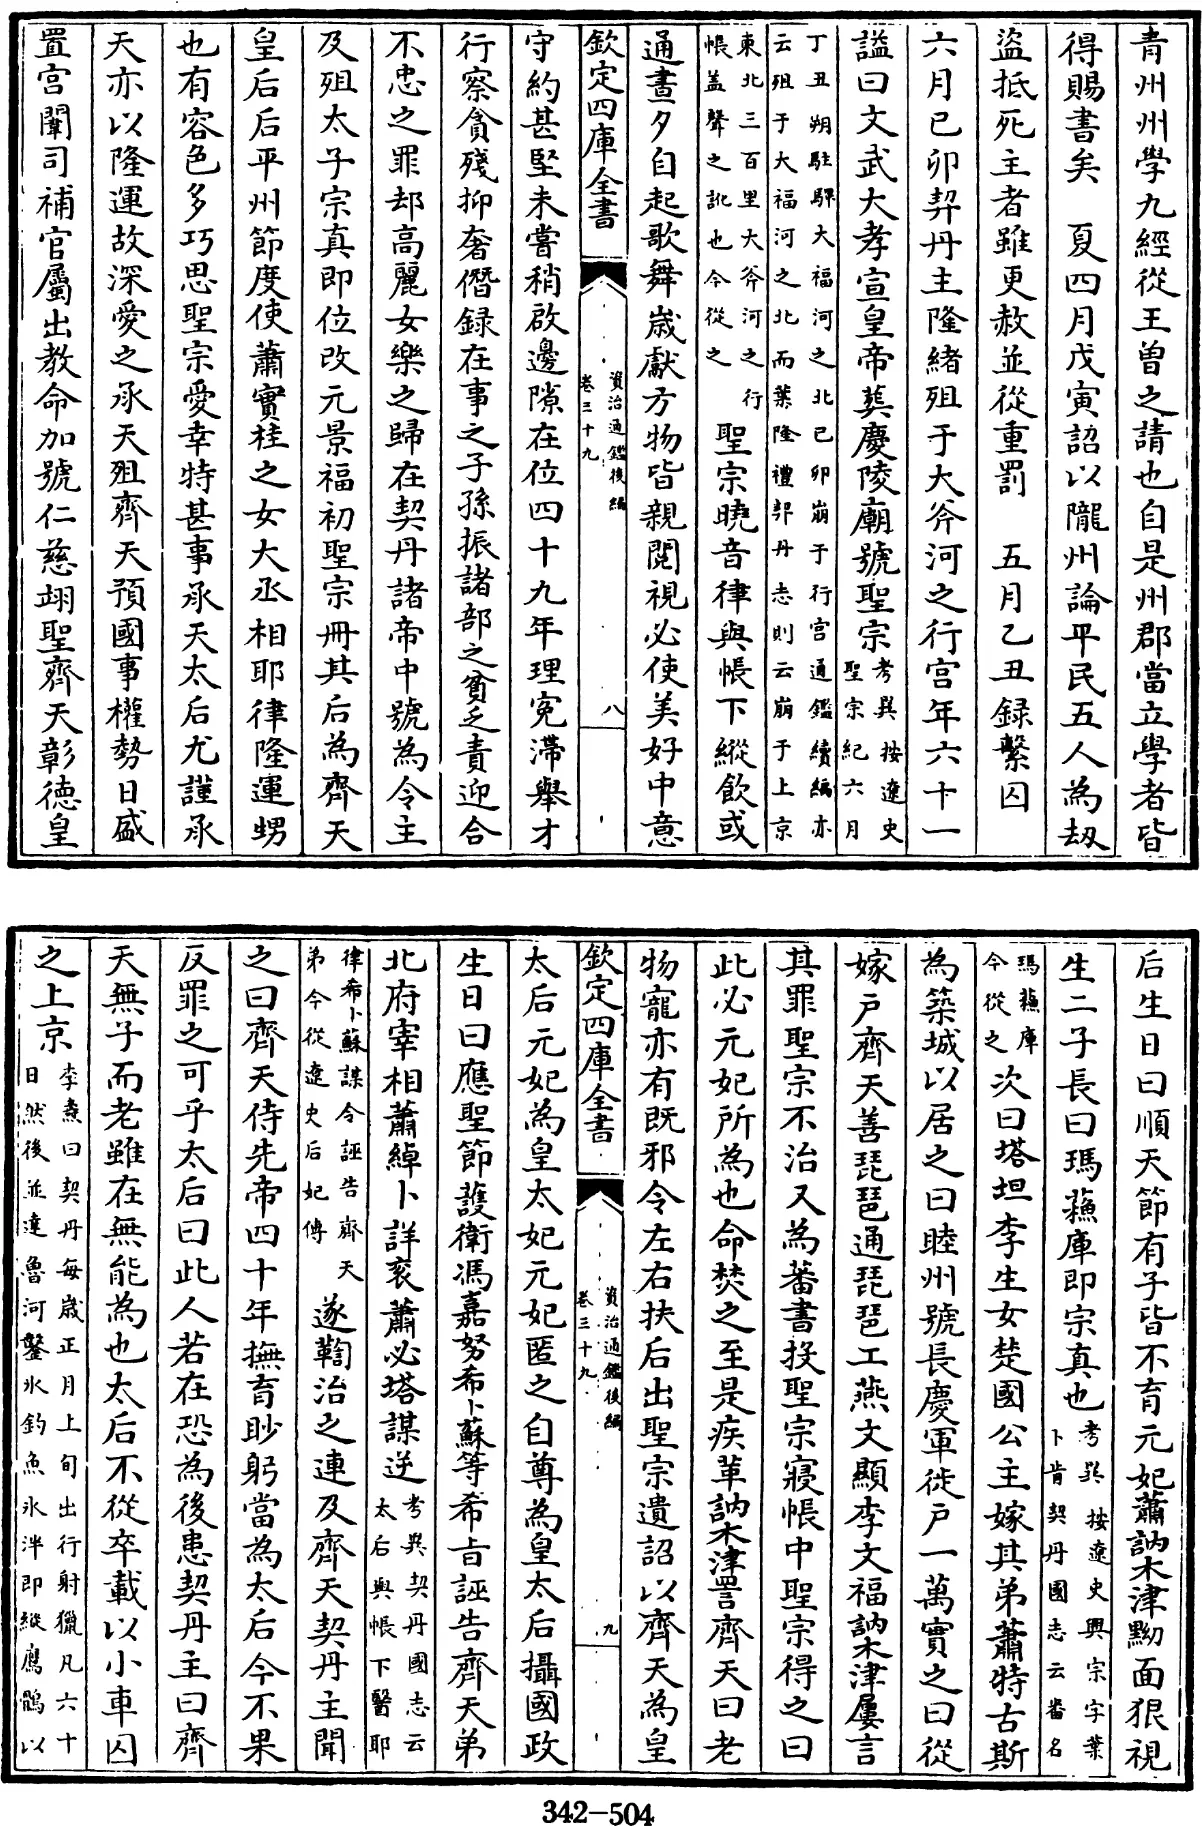 青州州學九經從王曾之請也自是州郡當立學者皆
得賜書矣　夏四月戊寅詔以隴州論平民五人為刼
盜抵死主者雖更赦並從重罰　五月乙丑録繫囚
六月己卯契丹主隆緒殂于大斧河之行宫年六十一
諡曰文武大孝宣皇帝葬慶陵廟號聖宗考異按遼史聖宗紀六月
丁丑朔駐驆大福河之北己卯崩于行宫通鑑續編亦
云殂于大福河之北而葉隆禮契丹志則云崩于上京
東北三百里大斧河之行
帳盖聲之訛也今從之　聖宗曉音律與帳下縱飲或
通晝夕自起歌舞歲獻方物皆親閲視必使美好中意
欽定四庫全書
資治通鑑後編
卷三十九
八
守約甚堅未嘗稍啟邊隙在位四十九年理寃滯舉才
行察貪殘抑奢僭録在事之子孫振諸部之貧乏責迎合
不忠之罪却高麗女樂之歸在契丹諸帝中號為令主
及殂太子宗真即位改元景福初聖宗冊其后為齊天
皇后后平州節度使蕭實桂之女大丞相耶律隆運甥
也有容色多巧思聖宗愛幸特甚事承天太后尤謹承
天亦以隆運故深愛之承天殂齊天預國事權勢日盛
置宫闈司補官屬出教命加號仁慈翊聖齊天彰徳皇
后生日曰順天節有子皆不育元妃蕭訥木津黝面狠視
生二子長曰瑪蘓庫即宗真也考異按遼史興宗字葉卜肯契丹國志云番名
瑪蘓庫
今從之　次曰塔坦李生女楚國公主嫁其弟蕭特古斯
為築城以居之曰睦州號長慶軍徙户一萬實之曰從
嫁户齊天善琵琶通琵琶工燕文顯李文福訥木津屢言
其罪聖宗不治又為蕃書投聖宗寢帳中聖宗得之曰
此必元妃所為也命焚之至是疾革訥木津詈齊天曰老
物寵亦有既邪令左右扶后出聖宗遺詔以齊天為皇
欽定四庫全書
資治通鑑後編
卷三十九
九
太后元妃為皇太妃元妃匿之自尊為皇太后攝國政
生日曰應聖節護衛馮嘉努希卜蘇等希㫖誣告齊天弟
北府宰相蕭綽卜詳衮蕭必塔謀逆考異契丹國志云太后與帳下醫耶
律希卜蘇謀令誣告齊天
弟今從遼史后妃傳　遂鞫治之連及齊天契丹主聞
之曰齊天侍先帝四十年撫育眇躬當為太后今不果
反罪之可乎太后曰此人若在恐為後患契丹主曰齊
天無子而老雖在無能為也太后不從卒載以小車囚
之上京李燾曰契丹每歲正月上旬出行射獵凡六十日然後並達魯河鑿氷釣魚氷泮即縱鷹鶻以
342-504